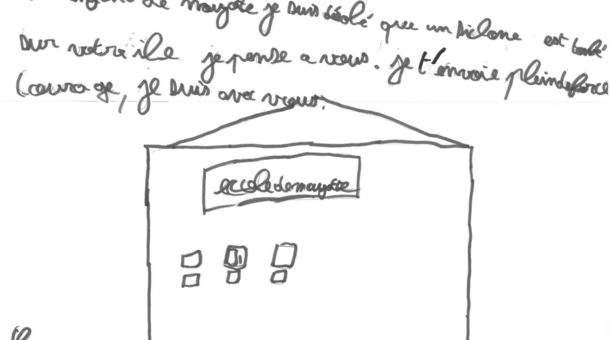 de mayote je suis désolé que un siclone est tombé
sur votre ile je pense a vous. je t'envoie pleindeforce
Courage, je suis avec vous.
eccoledemayote